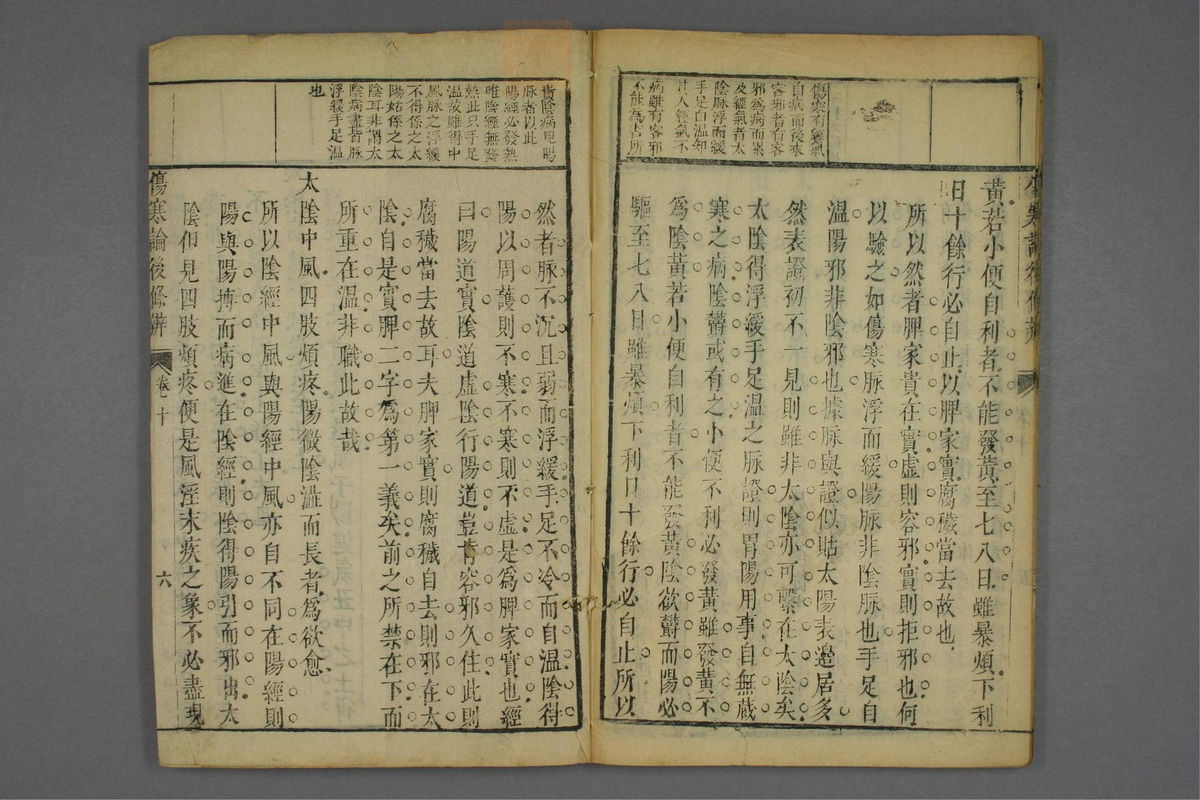 黃若小便自利者不能發黃至七八日雖暴煩下利
日十餘行必自止以脾家實腐穢當去故也
所以然者脾家貴在實虛則容邪實則拒邪也何
以驗之如傷寒脉浮而緩陽脉非陰脉也手足自
溫陽邪非陰邪也據脉與證似貼太陽表邊居多
然表證初不一見則雖非太陰亦可繫在太陰矣
太陰得浮緩手足溫之脉證則胃陽用事自無藏
寒之病陰鬱或有之小便不利必發黃雖發黃不
為陰黃若小便自利者不能發黃陰欲鬱而陽必
驅至七八日雖暴煩下利日十餘行必自止所以
傷寒有經氣
自病而後來
客邪者有客
邪為病而累
及經氣者太
陰脉浮而緩
手足自溫却
其人經氣不
病雖有客邪
不能為害所
然者脉不沉且弱而浮緩手足不冷而自溫陰得
陽以周護則不寒不寒則不虛是為脾家實也經
曰陽道實陰道虛陰行陽道豈肯容邪久住此則
腐穢當去故耳夫脾家實則腐穢自去則邪在太
陰自是實脾二字為第一義矣前之所禁在下而
所重在溫非職此故哉
太陰中風四肢煩疼陽微陰濇而長者為欲愈
所以陰經中風與陽經中風亦自不同在陽經則
陽與陽搏而病進在陰經則陰得陽引而邪出太
陰但見四肢煩疼便是風淫末疾之象不必盡現
脉者以此
陽經必發熱
唯陰經無發
熱此只手足
溫故雖得中
風脉之浮緩
不得係之太
陽姑係之太
陰耳非謂太
陰病盡皆脉
浮緩手足溫
也
傷寒論後條辨
卷十
六